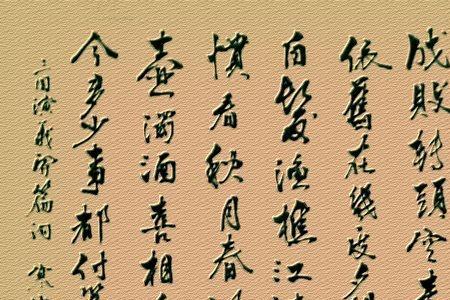 成敗轉頭空
依舊在幾度夕
白髮漁樵江
慣看秋月春
壺濁酒喜相
今多少事都付
三国演義開篇词